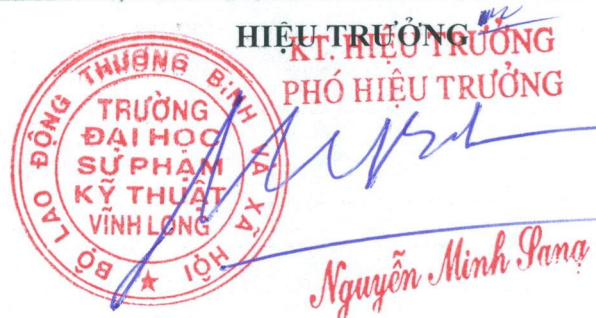 HIỆU TRƯỞNG
KT. HIỆU TRƯỞNG
PHÓ HIỆU TRƯỞNG
BỘ LAO ĐỘNG THƯƠNG BINH VÀ XÃ HỘI
TRƯỜNG
ĐẠI HỌC
SƯ PHẠM
KỸ THUẬT
VĨNH LONG
Nguyễn Minh Sang